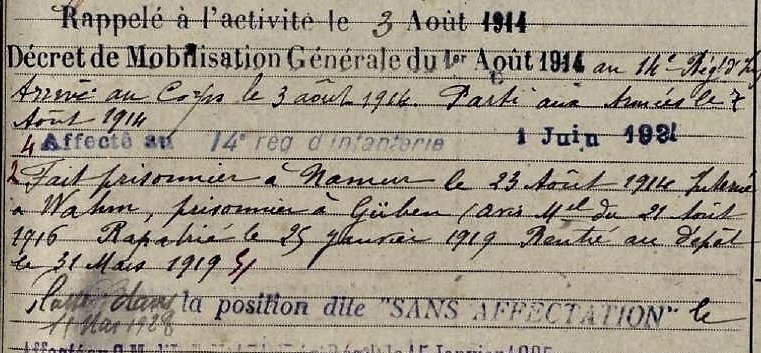 Rappelé à l'activité le 3 Août 1914
Décret de Mobilisation Générale du 1er Août 1914 au 14e Régt d'Inf
Arrivé au Corps le 3 août 1914. Parti aux Armées le 7
Aout 1914
4 Affecté au 14e rég d'infanterie 1 Juin 1921
2 Fait prisonnier à Namur le 23 Août 1914 Interné
à Wahm, prisonnier à Güben (avis Mel du 21 Août
1916 Rapatrié le 25 Janvier 1919 Rentré au dépôt
le 31 Mars 1919
dans la position dite "SANS AFFECTATION" le
11 Mai 1928
Janvier